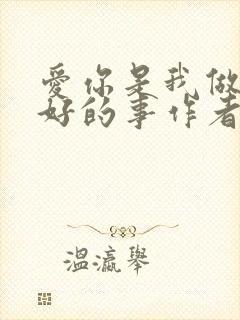 爱你是我做
好的事作者
温瀛举